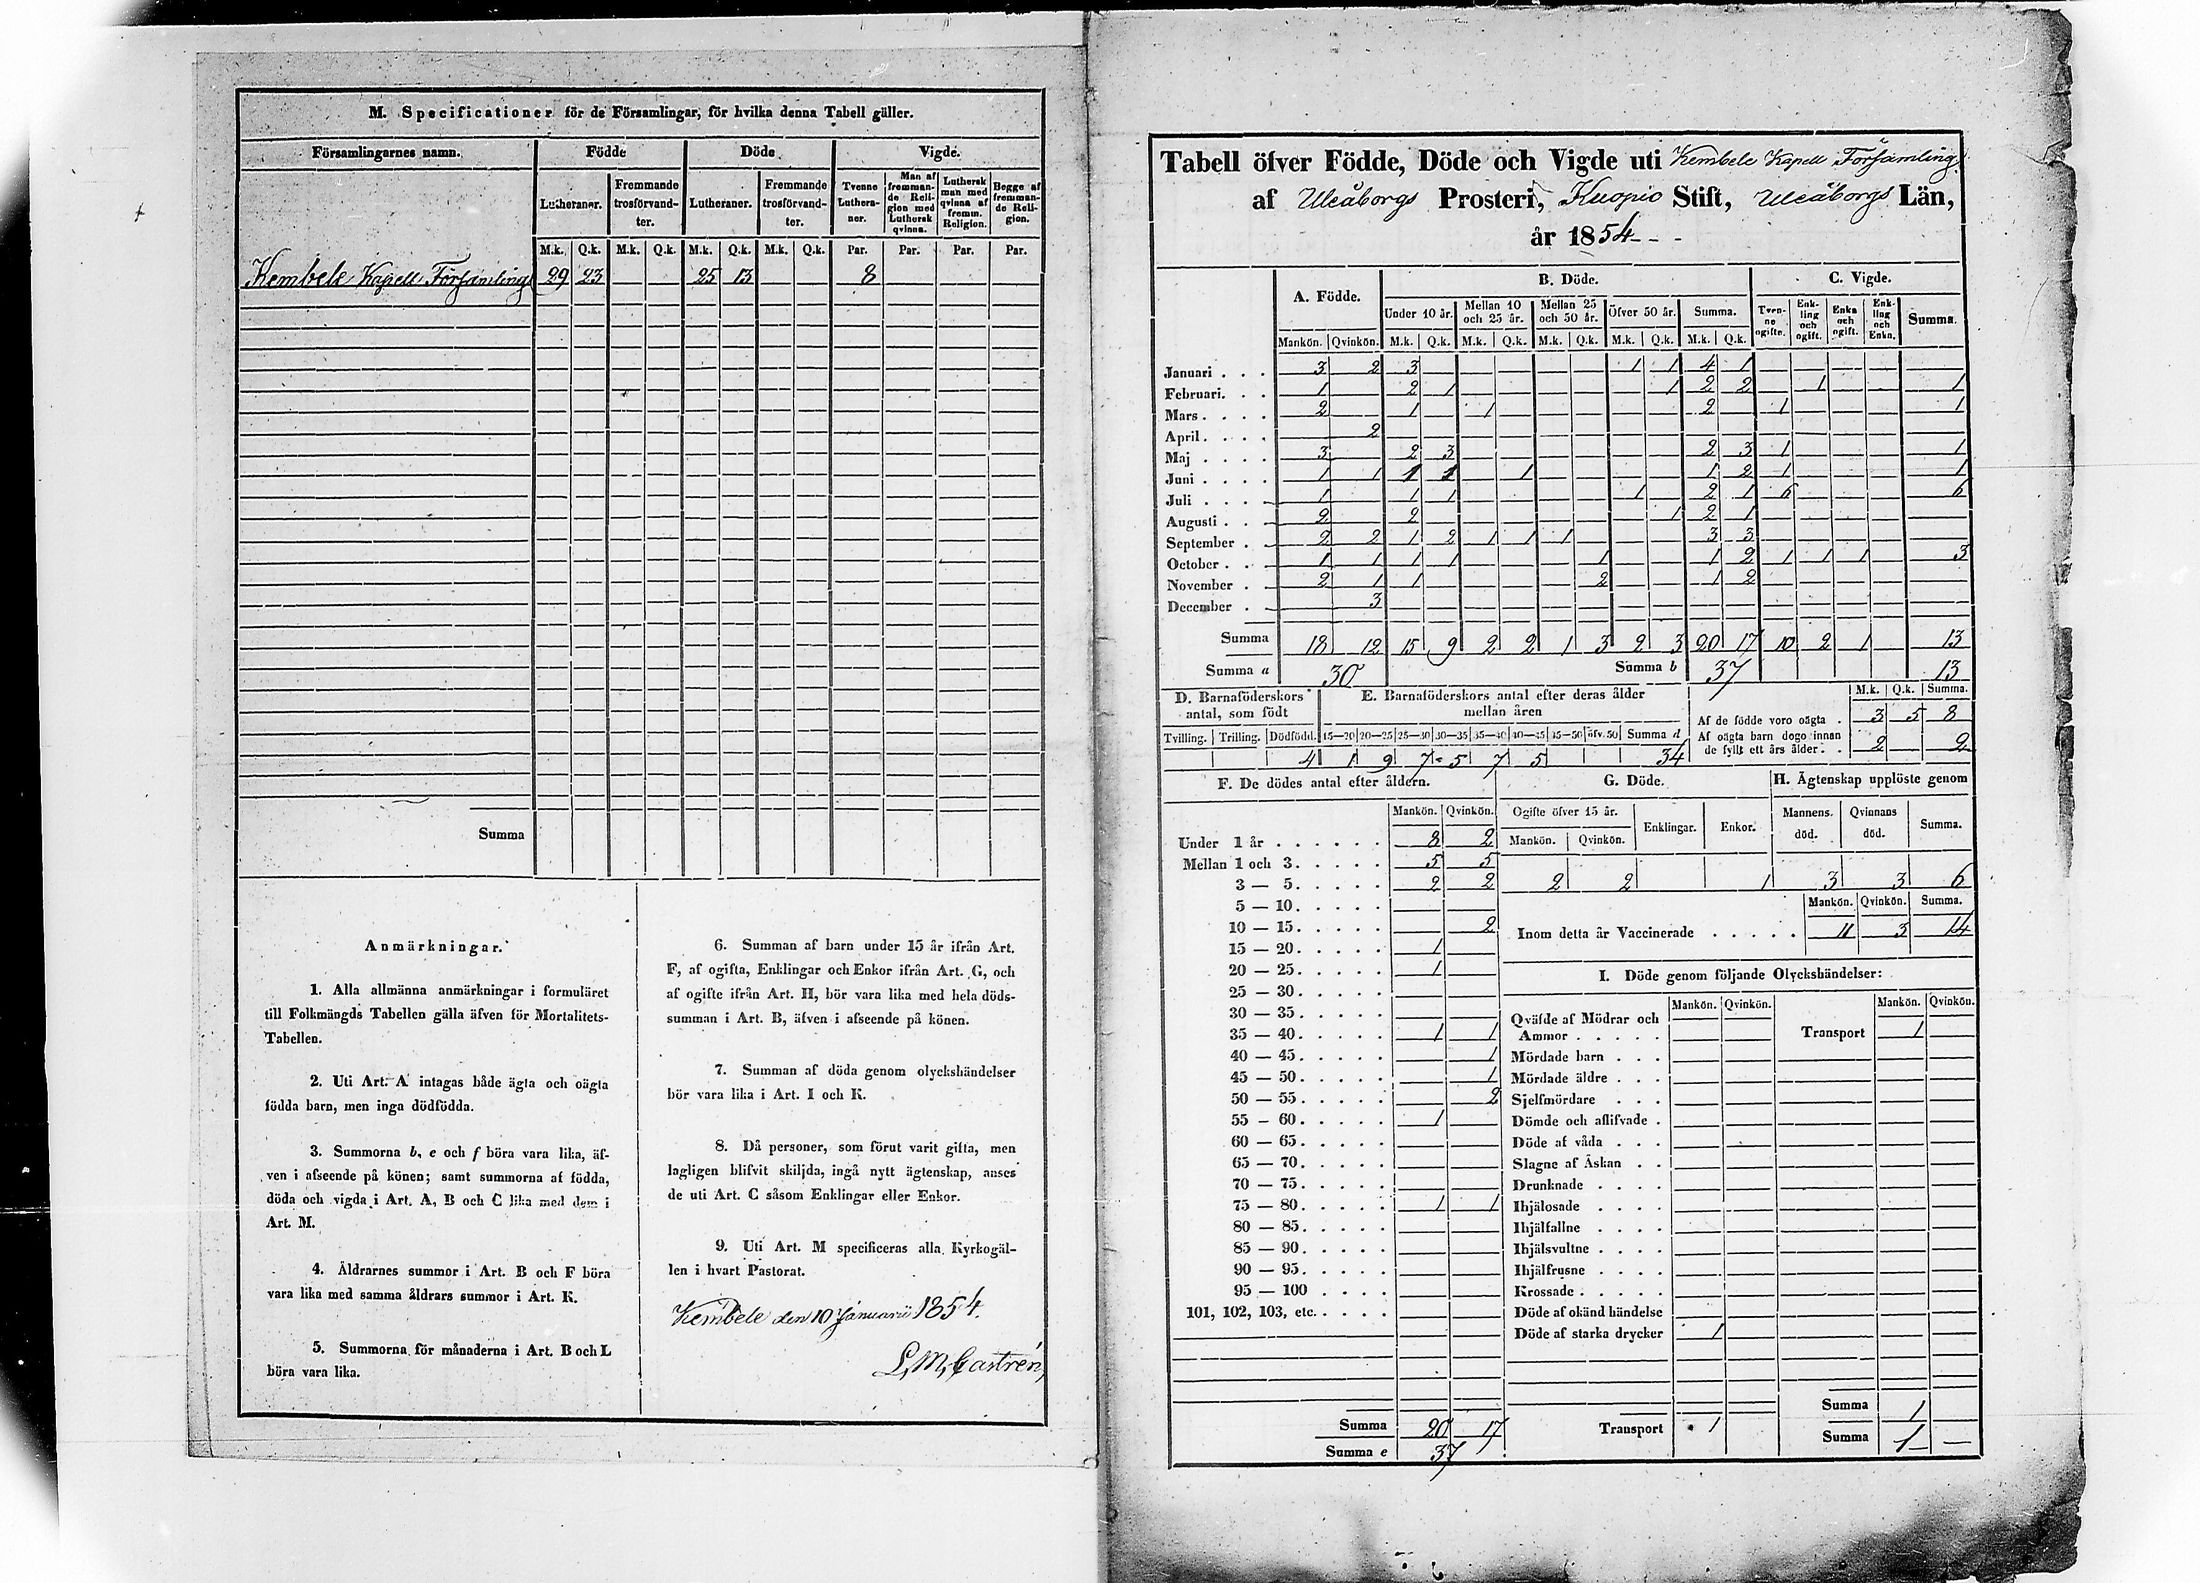 M. Specificationer för de Församlingar, för hvilka denna Tabell gäller.
Församlingarnes namn. Födde Döde Vigde.
Lutheraner. Fremmande trosförvandter. Lutheraner. Fremmande trosförvandter. Tvenne Lutheraner. Man af fremmande Religion med Luthersk qvinna. Luthersk man med qvinna af fremm. Religion. Begge af fremmande Religion.
M.k. Q.k. M.k. Q.k. M.k. Q.k. M.k. Q.k. Par. Par. Par. Par.
Kembele Kapell Församling 29 23 25 13 8
Summa
Anmärkningar.
1. Alla allmänna anmärkningar i formuläret
till Folkmängds Tabellen gälla äfven för Mortalitets-
Tabellen.
2. Uti Art. A intagas både ägta och oägta
födda barn, men inga dödfödda.
3. Summorna b, e och f böra vara lika, äf-
ven i afseende på könen; samt summorna af födda,
döda och vigda i Art. A, B och C lika med dem i
Art. M.
4. Åldrarnes summor i Art. B och F böra
vara lika med samma åldrars summor i Art. K.
5. Summorna för månaderna i Art. B och L
böra vara lika.
6. Summan af barn under 15 år ifrån Art.
F, af ogifta, Enklingar och Enkor ifrån Art. G, och
af ogifte ifrån Art. H, bör vara lika med hela döds-
summan i Art. B, äfven i afseende på könen.
7. Summan af döda genom olyckshändelser
bör vara lika i Art. I och K.
8. Då personer, som förut varit gifta, men
lagligen blifvit skiljda, ingå nytt ägtenskap, anses
de uti Art. C såsom Enklingar eller Enkor.
9. Uti Art. M specificeras alla Kyrkogäl-
len i hvart Pastorat.
Kembele den 10 Januarii 1854.
L. M. Castrén,
Tabell öfver Födde, Döde och Vigde uti Kembele Kapell Församling
af Uleåborgs Prosteri, Kuopio Stift, Uleåborgs Län,
år 1854
A. Födde. B. Döde. C. Vigde.
Under 10 år. Mellan 10 och 25 år. Mellan 25 och 50 år. Öfver 50 år. Summa. Tvenne ogifte. Enkling och ogift. Enka och ogift. Enkling och Enka. Summa.
Mankön. Qvinkön. M.k. Q.k. M.k. Q.k. M.k. Q.k. M.k. Q.k. M.k. Q.k.
Januari . . . 3 2 3 1 1 4 1
Februari. . . 1 2 1 1 2 2 1 1
Mars . . . . 2 1 1 2 1 1
April. . . . 2
Maj . . . . 3 2 3 2 3 1 1
Juni . . . . 1 1 1 1 1 1 2 1 1
Juli . . . . 1 1 1 1 2 1 6 6
Augusti . . 2 2 1 2 1
September . 2 2 1 2 1 1 1 3 3
October . . 1 1 1 1 1 1 2 1 1 1 3
November . 2 1 1 2 1 2
December . 3
Summa 18 12 15 9 2 2 1 3 2 3 20 17 10 2 1 13
Summa a 30 Summa b 37 13
D. Barnaföderskors antal, som födt
E. Barnaföderskors antal efter deras ålder mellan åren
M.k. Q.k. Summa.
Af de födde voro oägta . 3 5 8
Af oägta barn dogo innan
de fyllt ett års ålder . . 2 2
Tvilling. Trilling. Dödfödd. 15—20 20—25 25—30 30—35 35—40 40—45 45—50 öfv. 50 Summa d
4 1 9 7 5 7 5 34
F. De dödes antal efter åldern. G. Döde. H. Ägtenskap upplöste genom
Mankön. Qvinkön. Ogifte öfver 15 år. Enklingar. Enkor. Mannens död. Qvinnans död. Summa.
Mankön. Qvinkön.
2 2 1 3 3 6
Mankön. Qvinkön. Summa.
Inom detta år Vaccinerade . . . . . 11 3 14
Under 1 år . . . . . . 8 2
Mellan 1 och 3. . . . . 5 5
3 — 5. . . . . 2 2
5 — 10. . . . .
10 — 15. . . . . 2
15 — 20. . . . . 1
20 — 25. . . . . 1
25 — 30. . . . .
30 — 35. . . . .
35 — 40. . . . . 1 1
40 — 45. . . . . 1
45 — 50. . . . . 1
50 — 55. . . . . 2
55 — 60. . . . . 1
60 — 65. . . . .
65 — 70. . . . .
70 — 75. . . . .
75 — 80. . . . . 1 1
80 — 85. . . . .
85 — 90. . . . .
90 — 95. . . . .
95 — 100 . . . .
101, 102, 103, etc. . . . .
Summa 20 17
Summa e 37
I. Döde genom följande Olyckshändelser:
Mankön. Qvinkön. Mankön. Qvinkön.
Qväfde af Mödrar och
Ammor . . . . . Transport 1
Mördade barn . . .
Mördade äldre . . .
Sjelfmördare . . .
Dömde och aflifvade .
Döde af våda . . .
Slagne af Åskan . .
Drunknade . . . .
Ihjälosade . . . .
Ihjälfallne . . . .
Ihjälsvultne . . . .
Ihjälfrusne . . . .
Krossade . . . . .
Döde af okänd händelse
Döde af starka drycker 1
Summa 1
Transport 1 Summa 1 —